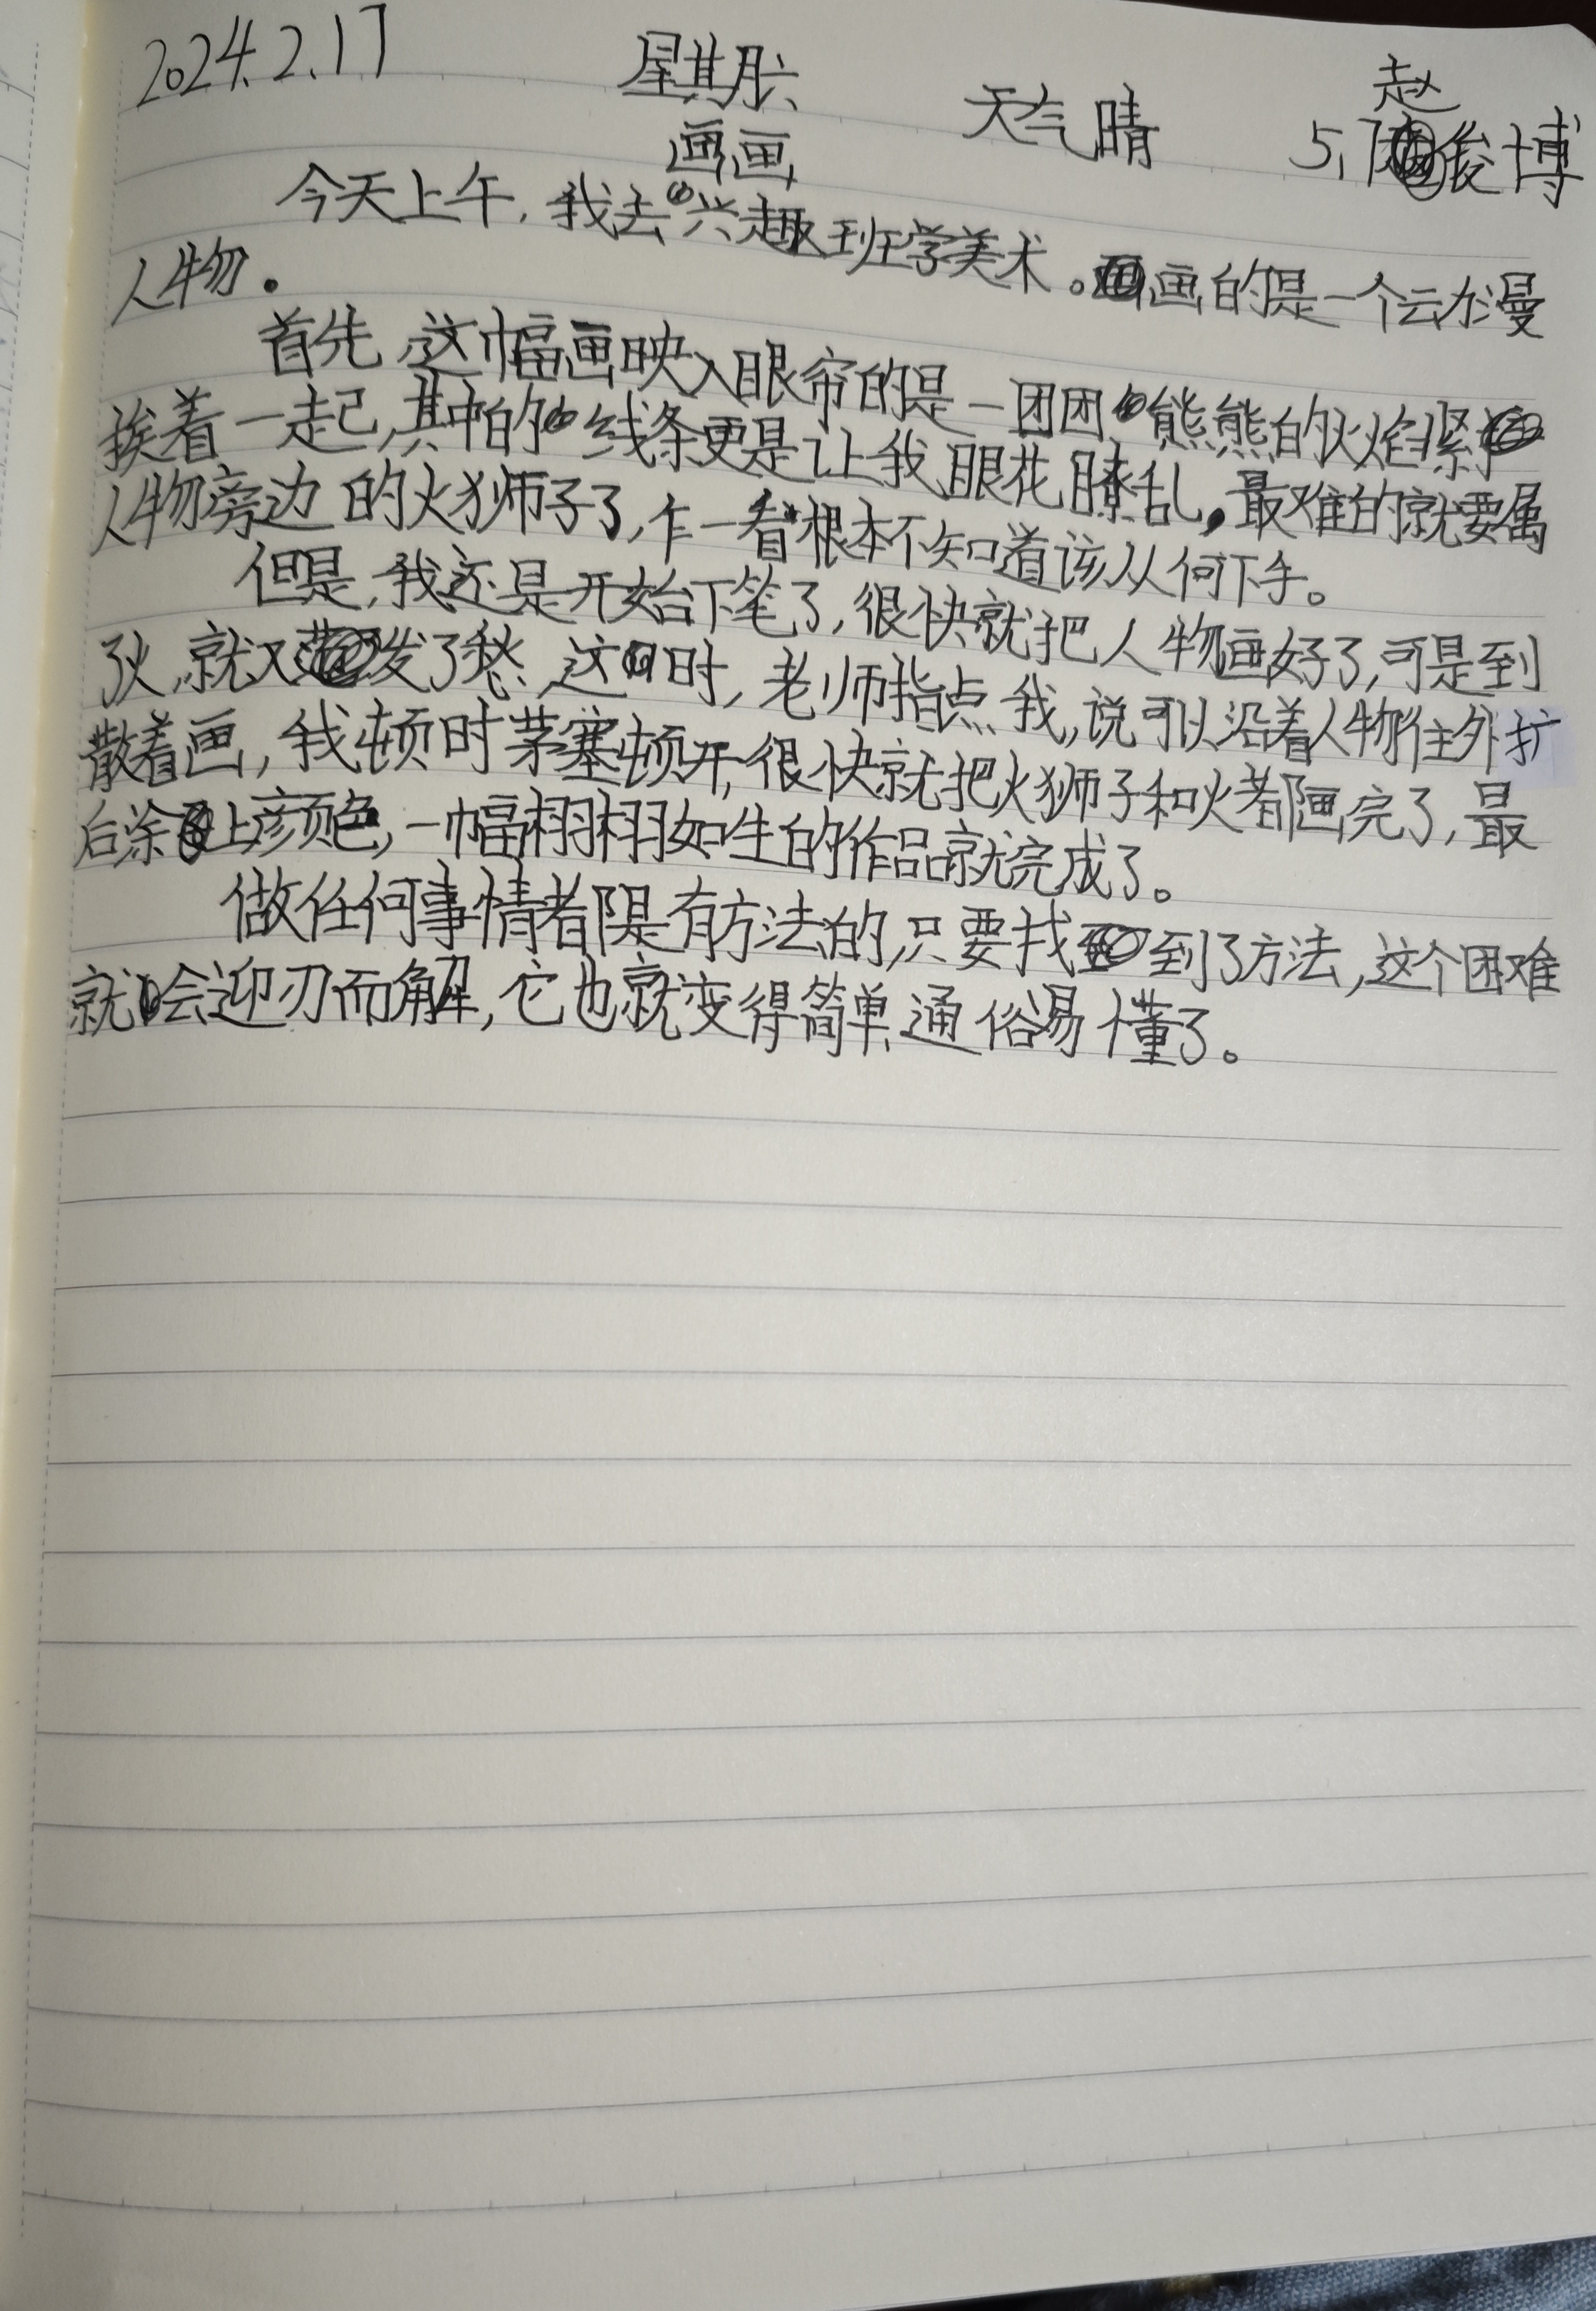 2024.2.17 星期六 天气晴 赵
5.1 俊博
画画
今天上午,我去兴趣班学美术。画的是一个动漫
人物.
首先,这幅画映入眼帘的是一团团熊熊的火焰紧
挨着一起,其中的线条更是让我眼花瞭乱,最难的就要属
人物旁边的火狮子了,乍一看根本不知道该从何下手。
但是,我还是开始下笔了,很快就把人物画好了,可是到
了火,就又发了愁,这时,老师指点我,说可以沿着人物往外扩
散着画,我顿时茅塞顿开,很快就把火狮子和火都画完了,最
后涂上颜色,一幅栩栩如生的作品就完成了。
做任何事情都是有方法的,只要找到了方法,这个困难
就会迎刃而解,它也就变得简单、通俗易懂了。